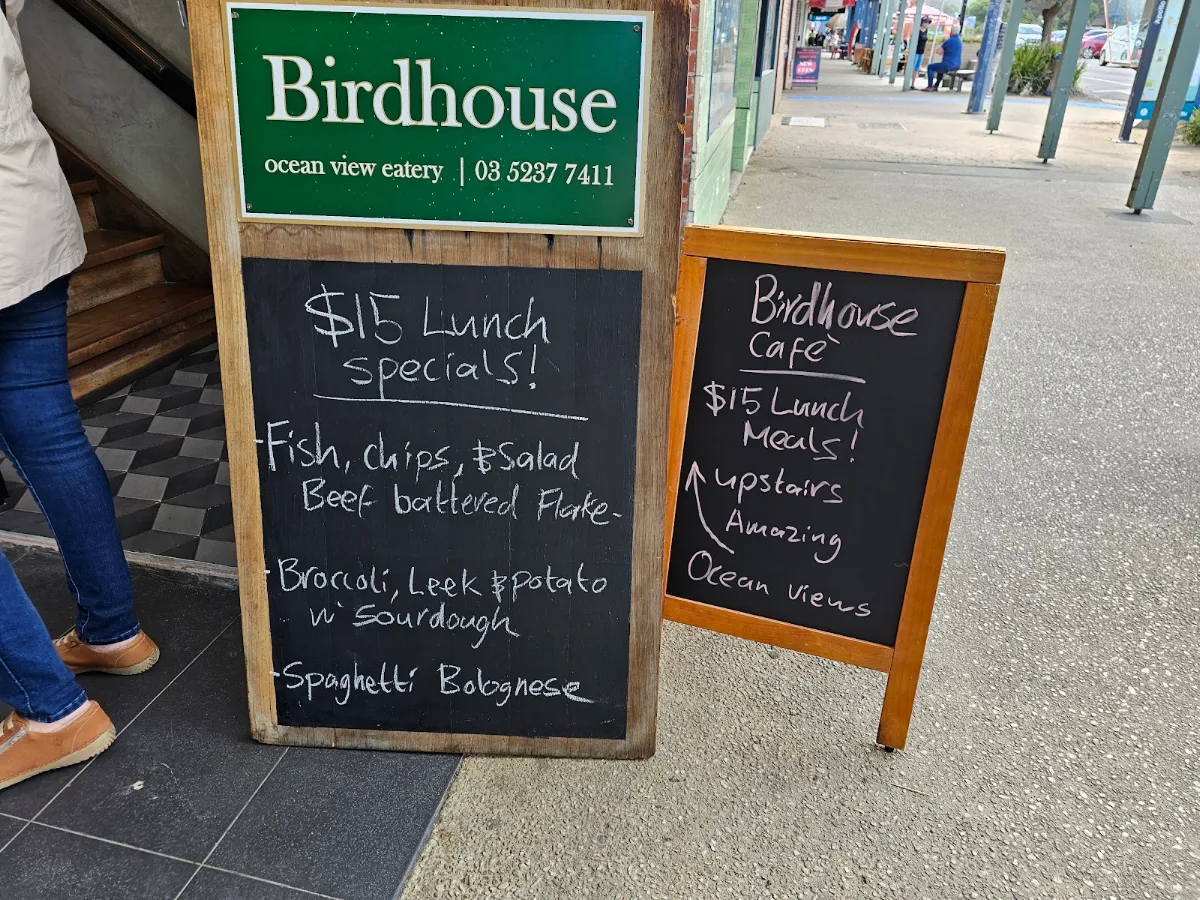 Birdhouse
ocean view eatery | 03 5237 7411
$15 Lunch
specials!
-Fish, chips, & Salad
Beef battered Flake-
-Broccoli, Leek & potato
w' Sourdough
-Spaghetti Bolognese
Birdhouse
Cafè
$15 Lunch
Meals!
upstairs
Amazing
Ocean views